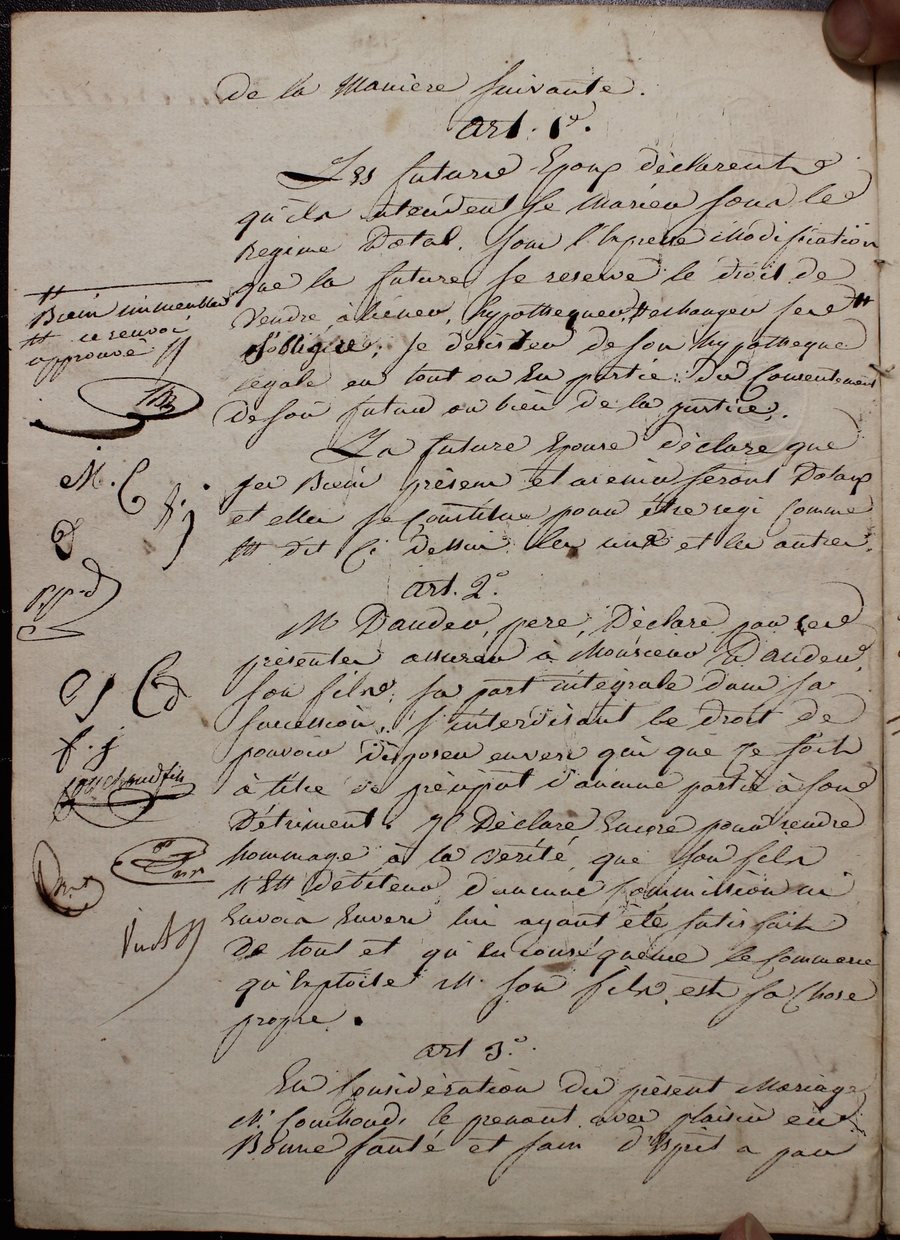 de la Maniere suivante.
art. 1er.
Les futurs Epoux déclarent
qu'ils entendent se Marier sous le
Regime Dotal. sous l'Expresse Modification
que la future se reserve le droit de
vendre, aliéner, hypothequer, echanger ses #
s'obliger, se désister de son hypotheque
légale en tout ou En partie. Du Consentement
de son futur ou bien de la justice.
La future Epouse déclare que
ses Biens présens et avenir seront Dotaux
et elle se Constitue pour être regi Comme
est dit Ci dessus les uns et les autres.
art. 2°.
M Dauder, pere, Déclare par ces
présentes assurer à Monsieur Dauder,
son fils, sa part intégrale dans sa
succession, s'interdisant le droit de
pouvoir disposer envers qui que ce soit
à titre de préciput d'aucune partie à son
Détriment. Il Déclare Encore pour rendre
hommage à la vérité que son fils
n'Est débiteur d'aucune Commission ni
Envoi Envers lui ayant été satisfait
De tout et qu'en conséquence le Commerce
qu'Exploite M. son fils est sa Chose
propre.
art 3°.
En Considération du présent Mariage
Mr Couchoud, le prenant avec plaisir en
Bonne santé et sain d'Esprit a par
# Biens immeubles
# ce renvoi
approuvé
M. C
f. j
Cd
f. j
Couchoud fils